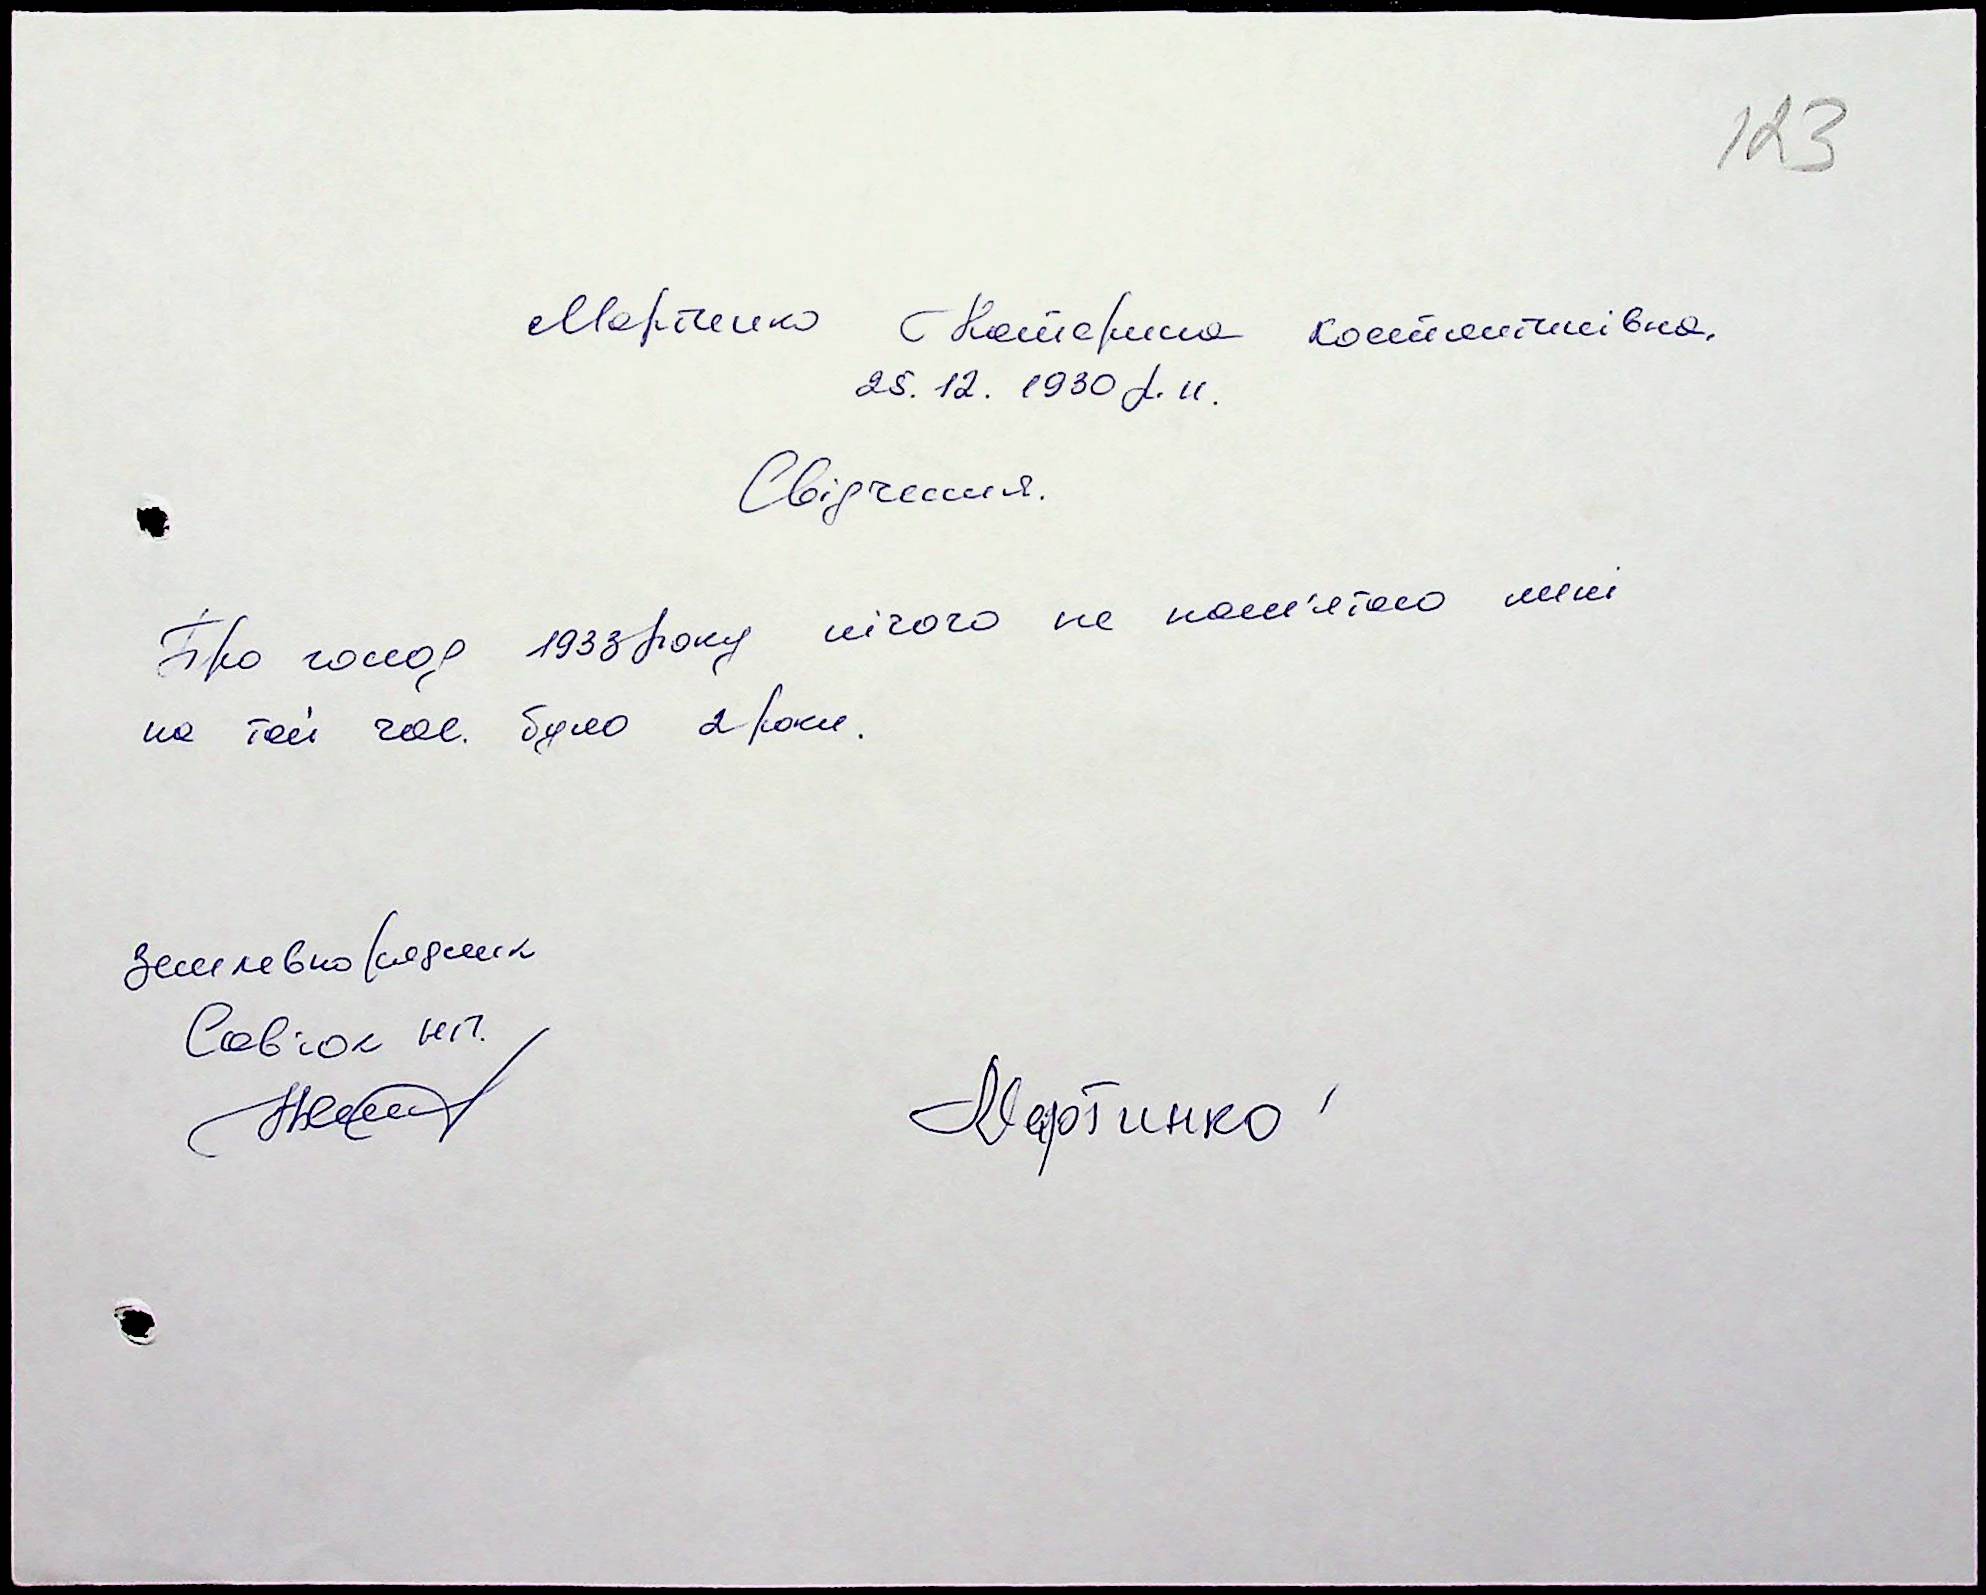 123
Мартинко Катерина Костянтинівна.
25. 12. 1930 р. н.
Свідчення.
Про голод 1933 року нічого не пам'ятаю мені
на той час. було 2 роки.
Землевпорядник
Савчок Н.П.
Мартинко